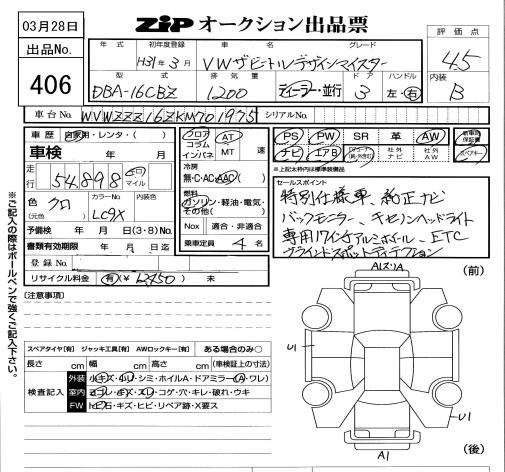 03月28日
ZIP オークション出品票
出品No.
406
評価点
4.5
内装
B
年式 初年度登録 車名 グレード
H31年3月 VWザビートルデザインマイスター
型式 排気量 ドア ハンドル
DBA-16CBZ 1200 ディーラー・並行 3 左・右
車台No. WVWZZZ16ZKM701975 シリアルNo.
車歴 自家用・レンタ・( )
車検 年 月
走行 54,898 km マイル
色 クロ
(元色)
カラーNo. LC9X
内装色
予備検 年 月 日(3・8)No.
書類有効期限 年 月 日迄
登録No.
リサイクル料金 有(¥ ) 未
フロア コラム インパネ
AT MT 速
冷房
無・C・AC・AAC( )
燃料
ガソリン・軽油・電気・その他( )
Nox 適合・非適合
乗車定員 4名
PS PW SR 革 AW
ナビ エアB 社外ナビ 社外AW
新車時保証書
スペアキー
※上記太枠内は標準装備品
セールスポイント
特別仕様車、純正ナビ
バックモニター、キセノンヘッドライト
専用17インチアルミホイール、ETC
ブラインドスポットディテクション
※ご記入の際はボールペンで強くご記入下さい。
〔注意事項〕
スペアタイヤ[有] ジャッキ工具[有] AWロックキー[有] ある場合のみ○
長さ cm 幅 cm 高さ cm (車検証上の寸法)
検査記入
外装 小キズ・小U・シミ・ホイルA・ドアミラー(A・ワレ)
室内 ヨゴレ・キズ・スレ・コゲ・穴・キレ・破れ・ウキ
FW トビ石・キズ・ヒビ・リペア跡・X要ス
(前)
U1
U1
A1
(後)